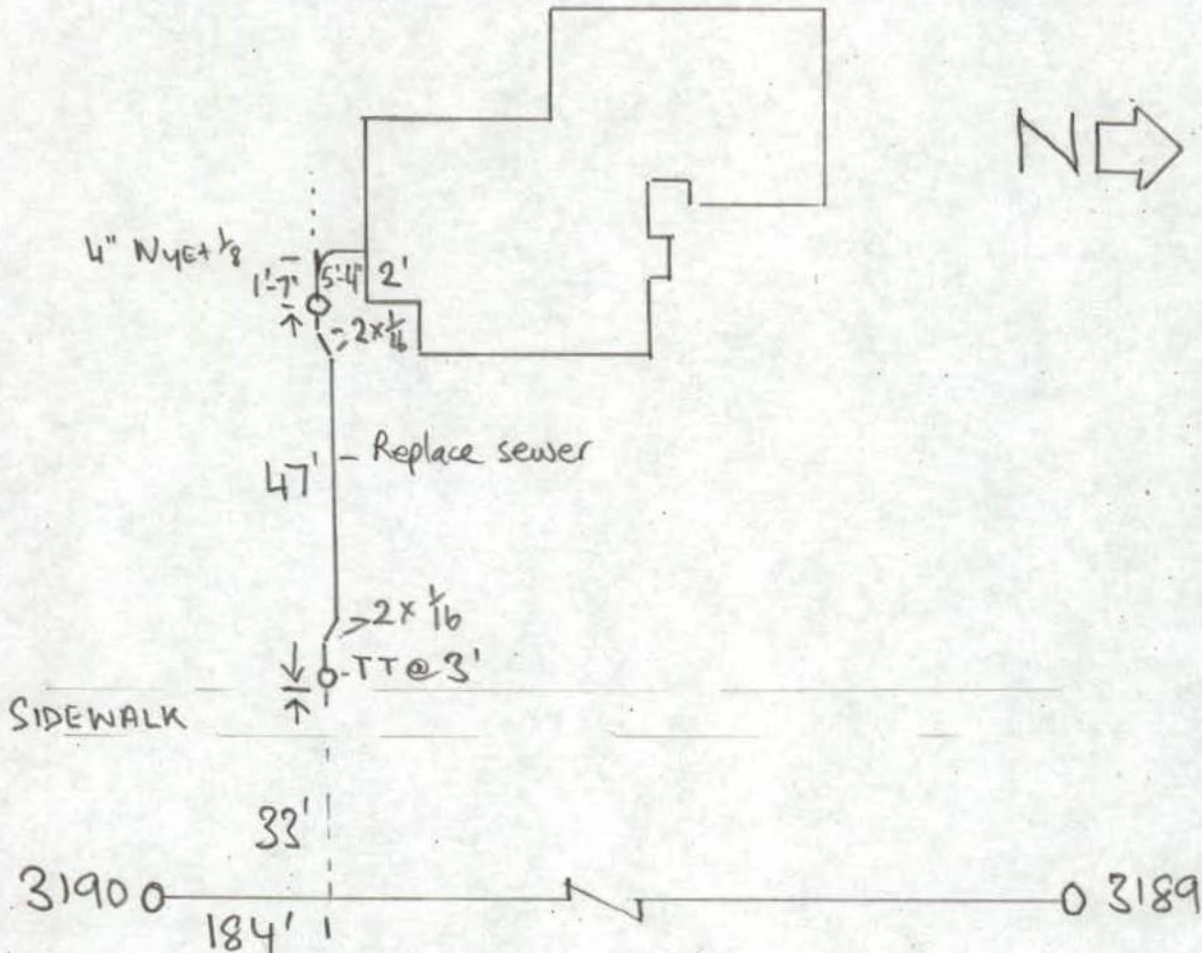 N
4" NYE+ 1/8
1'-7"
5'-4"
2'
2 x 1/16
47'
Replace sewer
2 x 1/16
TT @ 3'
SIDEWALK
33'
3190
3189
184'